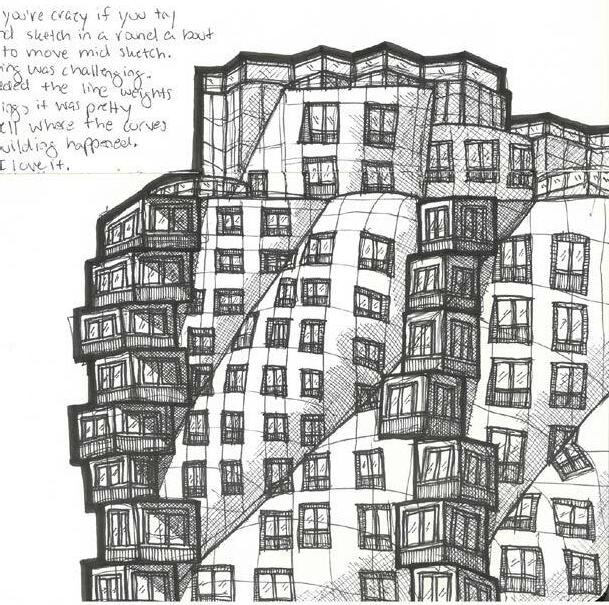 you're crazy if you try
sketch in a round a bout
to move mid sketch.
ing was challenging.
eded the line weights
ings it was pretty
ell where the curves
uilding happened.
I love it.